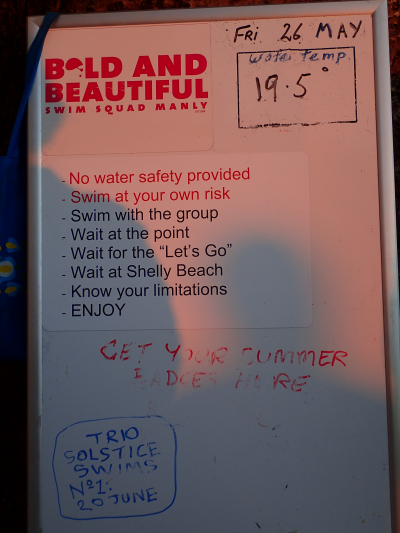 Fri 26 MAY
Water temp
19.5°
BOLD AND
BEAUTIFUL
SWIM SQUAD MANLY
- No water safety provided
- Swim at your own risk
- Swim with the group
- Wait at the point
- Wait for the “Let’s Go”
- Wait at Shelly Beach
- Know your limitations
- ENJOY
GET YOUR SUMMER
BADGES HERE
TRIO
SOLSTICE
SWIMS
Nº1:
20 JUNE